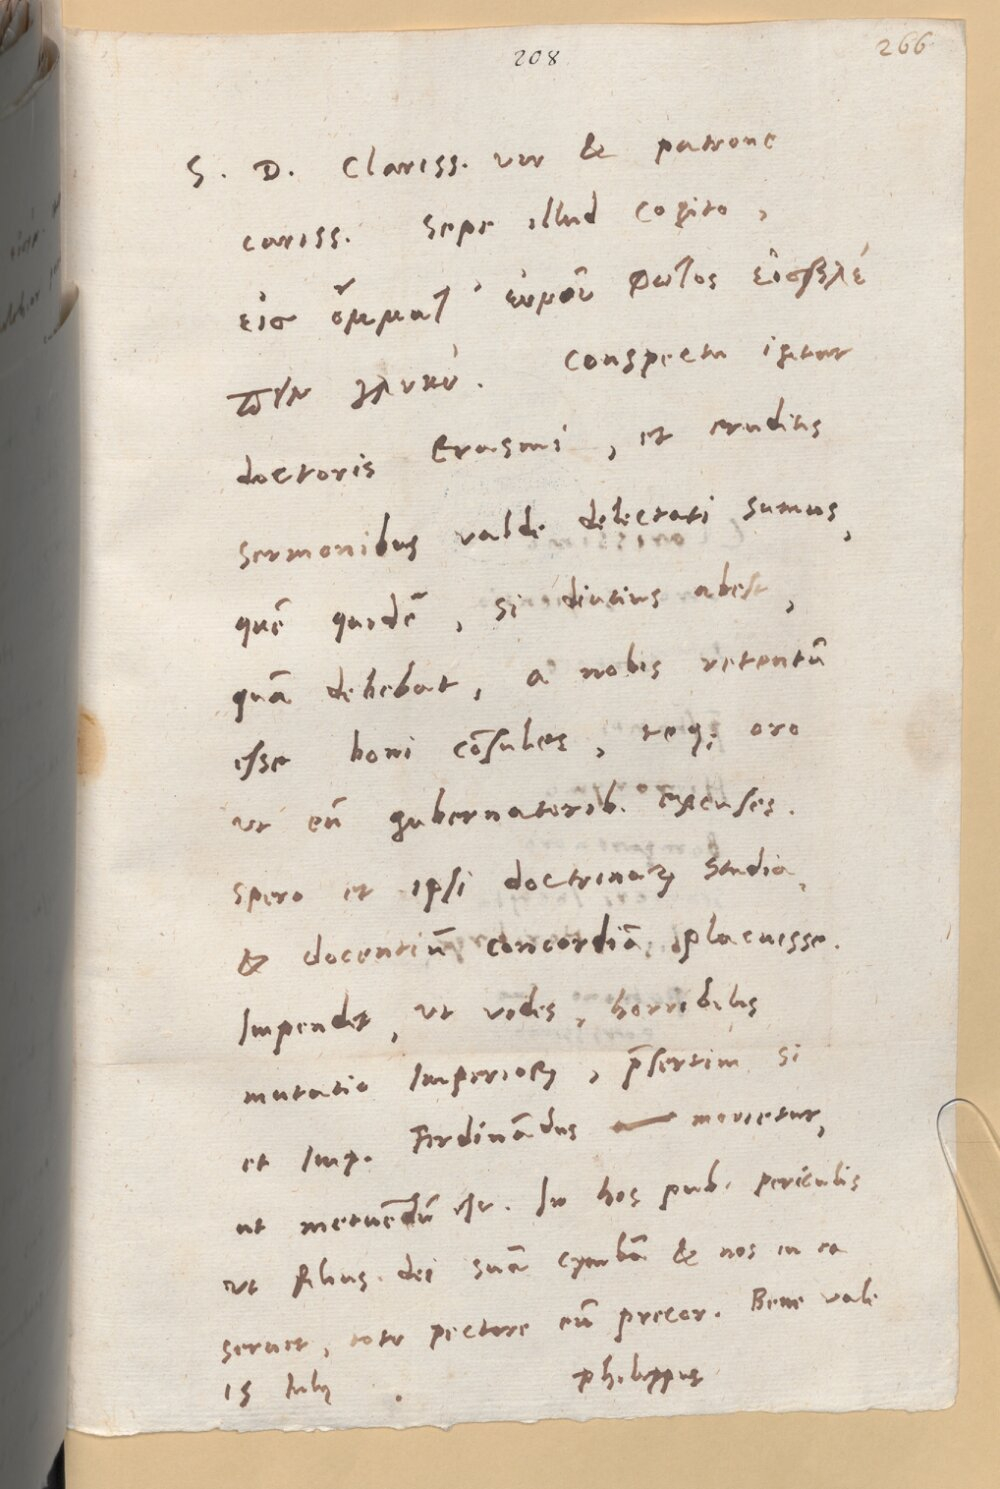 208
266
S. D. Clariss. vir & patrone
cariss. Sepe illud cogito,
εἰσ ὄμματ' εὔνου φωτος ἐισβλέ
πειν γλυκύ. Conspectu igitur
doctoris Erasmi, et eruditis
sermonibus valde delectati sumus,
quē quidē, si diutius abest,
quā debebat, a nobis retentū
esse boni cōsules, teq; oro
ut eū gubernatorib. excuses.
Spero et ipsi doctrinaꝝ studia,
& docentiū concordiā placuisse.
Impendet, ut vides, horribilis
mutatio Imperioꝝ, p̄sertim si
et Imp. Ferdinādus morietur,
ut metuēdū est. In hos pub. periculis
ut filius dei suā cymbā & nos in ea
seruet, toto pectore eū precor. Bene vale
15 Iulij
philippus